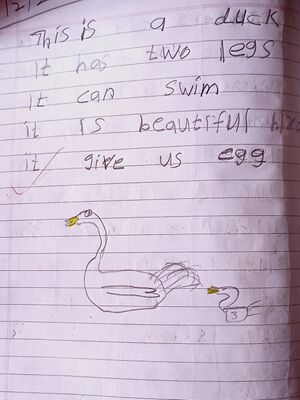 This is a duck
It has two legs
It can swim
it is beautiful
it give us egg
3